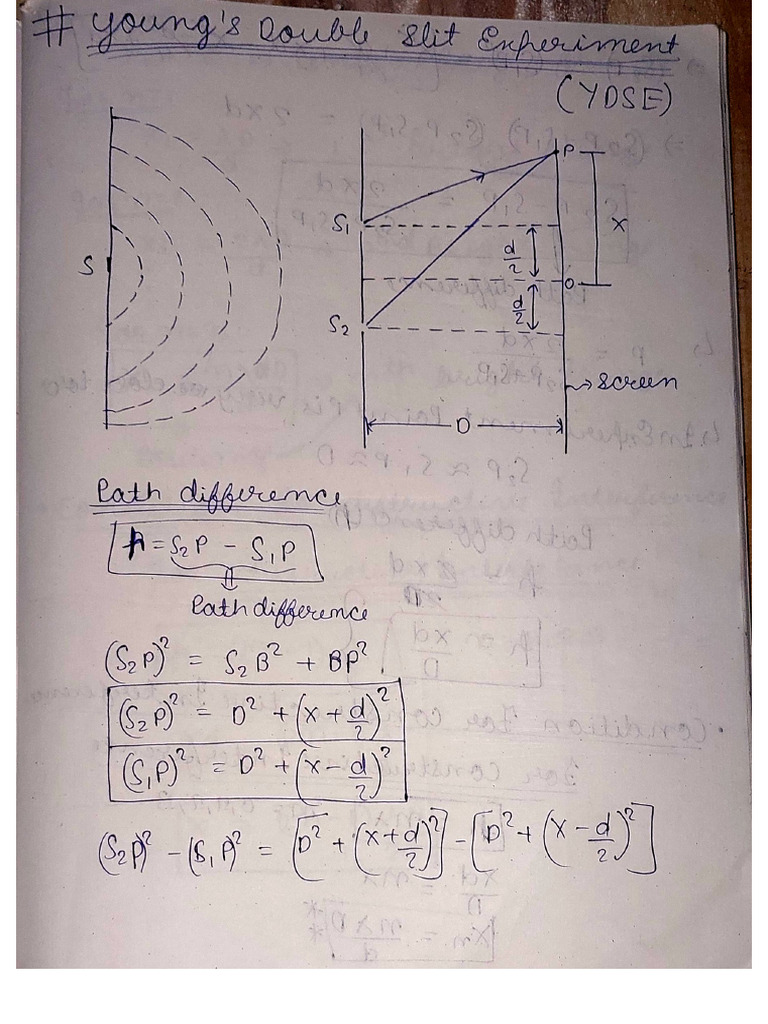 # Young's Double Slit Experiment
(YDSE)
P
S₁
x
d/2
S
O
d/2
S₂
→ screen
D
Path difference
p = S₂P - S₁P
Path difference
(S₂P)² = S₂B² + BP²
(S₂P)² = D² + (x + d/2)²
(S₁P)² = D² + (x - d/2)²
(S₂P)² - (S₁P)² = [D² + (x + d/2)²] - [D² + (x - d/2)²]